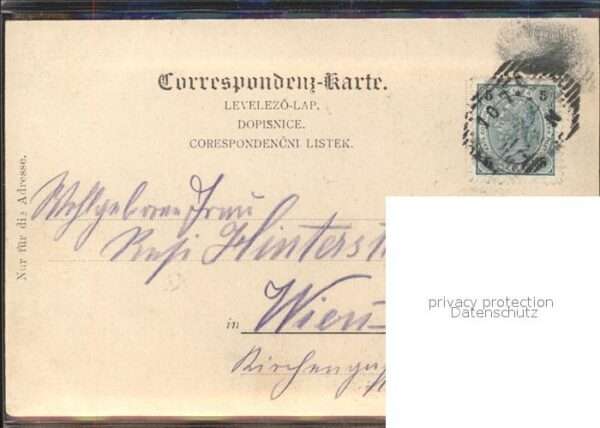 Correspondenz-Karte.
LEVELEZŐ-LAP.
DOPISNICE.
CORESPONDENČNI LISTEK.
Nur für die Adresse.
Wohlgeborene Frau
Resi Hinterst
in Wien
Kircheng
privacy protection
Datenschutz